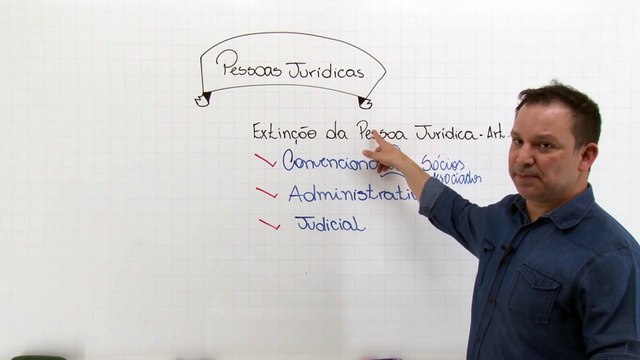 Pessoas Jurídicas
Extinção da Pessoa Jurídica - Art.
Convenciona Sócios
Associados
Administrati
Judicial